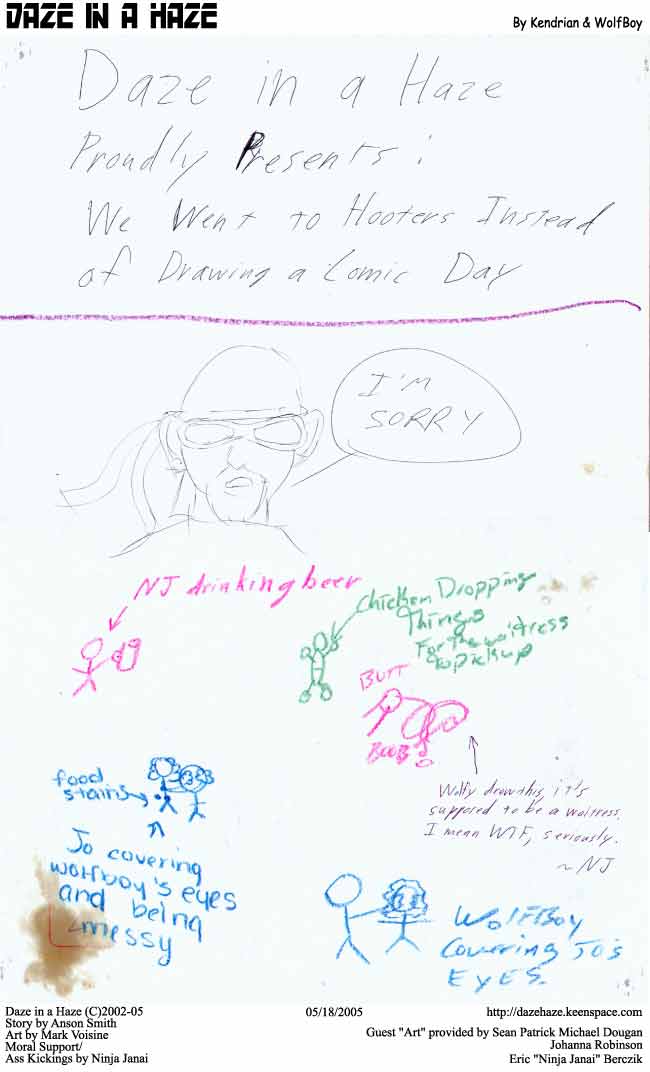 DAZE IN A HAZE
By Kendrian & WolfBoy
Daze in a Haze
Proudly Presents:
We Went to Hooters Instead
of Drawing a Comic Day
I'M
SORRY
NJ drinking beer
Chicken Dropping
Things
For the waitress
to pick up
BUTT
BOOB
food
stains
Wolfy drew this, it's
supposed to be a waitress.
I mean WTF, seriously.
~NJ
Jo covering
wolfboy's eyes
and being
messy
WOLFBoy
Covering JO's
EYES.
Daze in a Haze (C)2002-05
Story by Anson Smith
Art by Mark Voisine
Moral Support/
Ass Kickings by Ninja Janai
05/18/2005
http://dazehaze.keenspace.com
Guest "Art" provided by Sean Patrick Michael Dougan
Johanna Robinson
Eric "Ninja Janai" Berczik